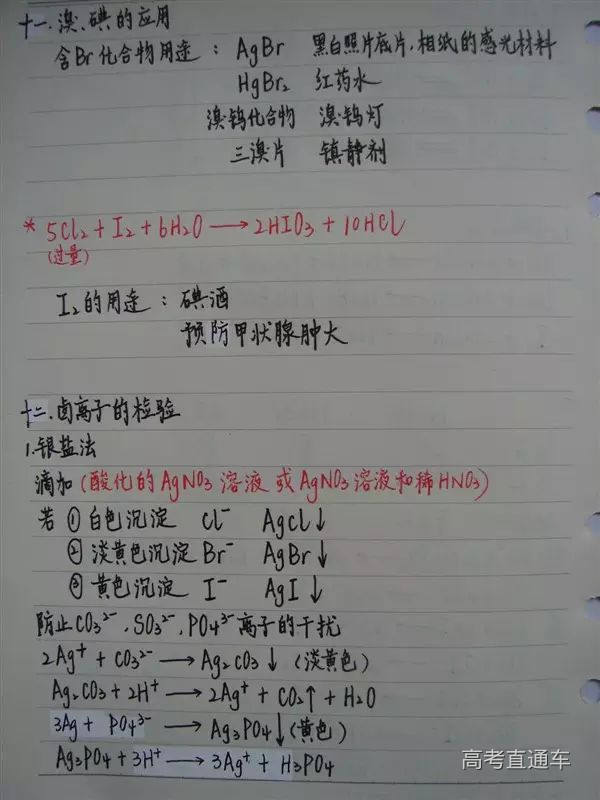 十一.溴、碘的应用
含Br化合物用途: AgBr 黑白照片底片,相纸的感光材料
HgBr₂ 红药水
溴钨化合物 溴钨灯
三溴片 镇静剂
* 5Cl₂+I₂+6H₂O⟶2HIO₃+10HCl
(过量)
I₂的用途: 碘酒
预防甲状腺肿大
十二.卤离子的检验
1.银盐法
滴加(酸化的AgNO₃溶液或AgNO₃溶液和稀HNO₃)
若 ①白色沉淀 Cl⁻ AgCl↓
②淡黄色沉淀 Br⁻ AgBr↓
③黄色沉淀 I⁻ AgI↓
防止CO₃²⁻、SO₃²⁻、PO₄³⁻离子的干扰
2Ag⁺+CO₃²⁻⟶Ag₂CO₃↓(淡黄色)
Ag₂CO₃+2H⁺⟶2Ag⁺+CO₂↑+H₂O
3Ag+ PO₄³⁻⟶Ag₃PO₄↓(黄色)
Ag₃PO₄+3H⁺⟶3Ag⁺+H₃PO₄
高考直通车